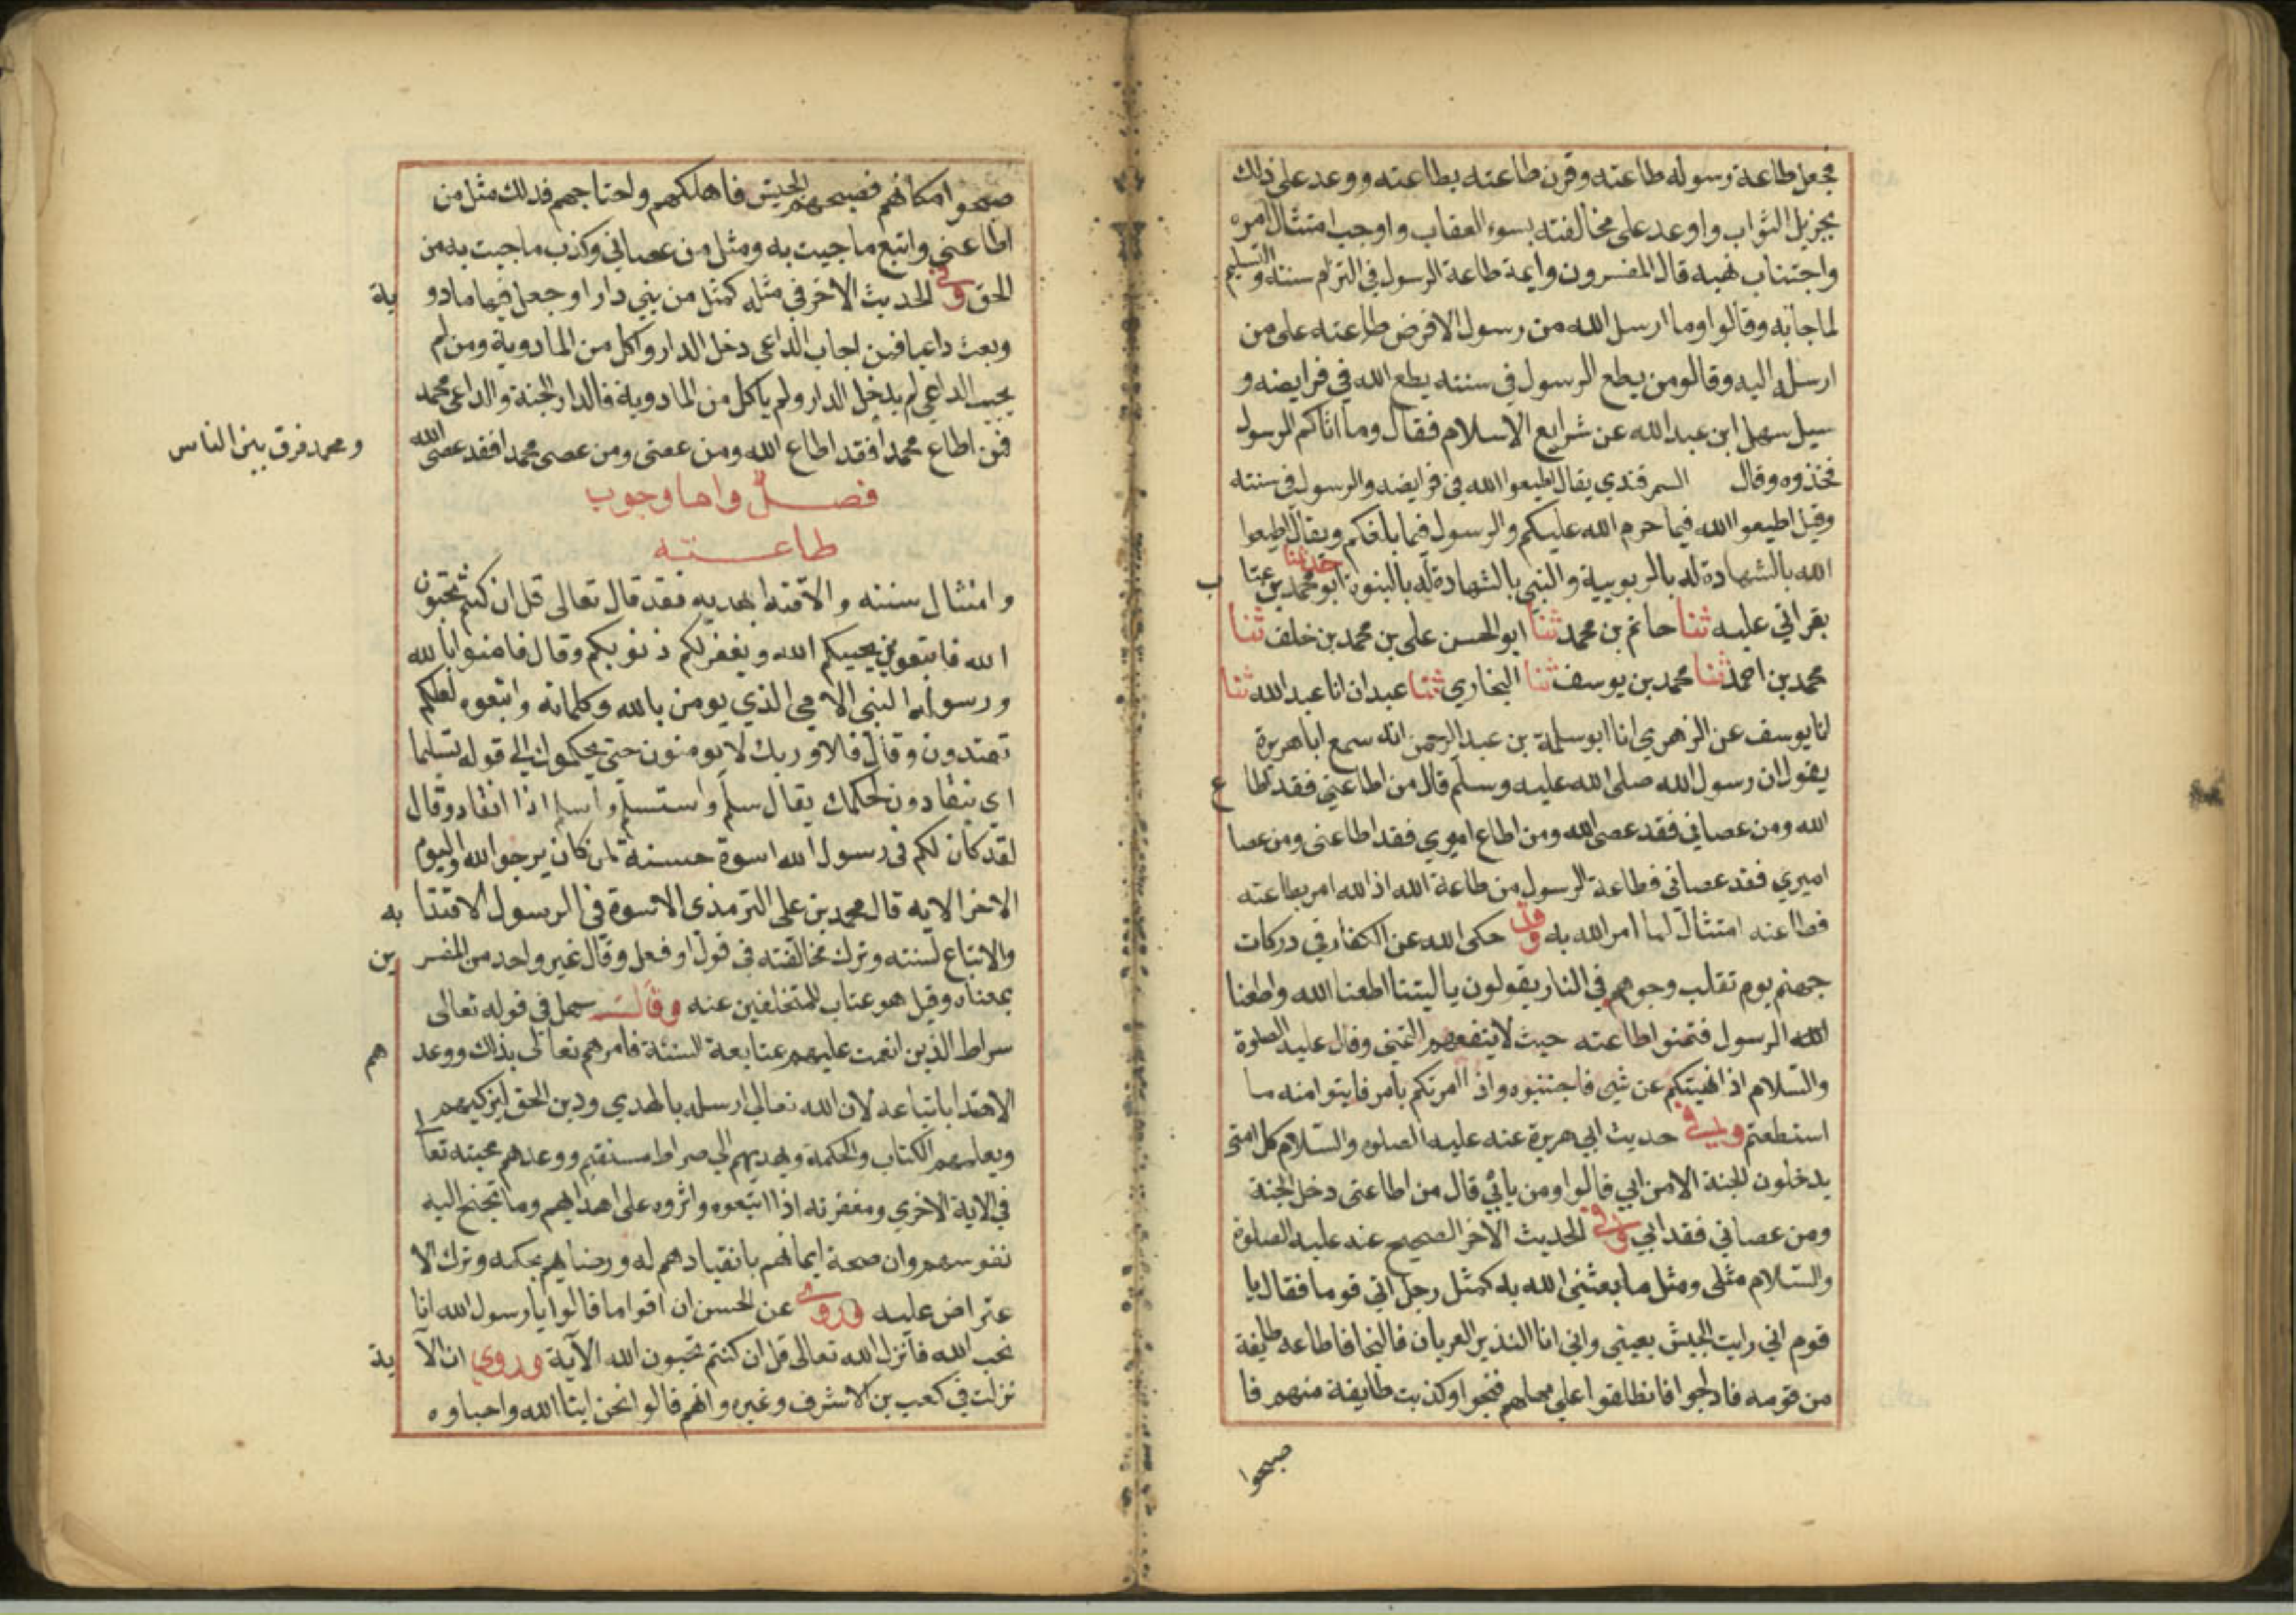 فجعل طاعة رسوله طاعته وقرن طاعته بطاعته ووعد على ذلك
بجزيل الثواب واوعد على مخالفته بسوء العقاب واوجب امتثال امره
واجتناب نهيه قال المفسرون وايمة طاعة الرسول في التزام سنته والتسليم
لما جا به وقالوا وما ارسل الله من رسول الا فرض طاعته على من
ارسله اليه وقالو من يطع الرسول في سننه يطع الله في فرايضه و
سيل سهل ابن عبد الله عن شرايع الاسلام فقال وما اتاكم الرسول
فخذوه وقال السمرقندي يقال اطيعوا الله في فرايضه والرسول في سنته
وقيل اطيعوا الله فيما حرم الله عليكم والرسول فيما بلغكم ويقال اطيعوا
الله بالشهادة له بالربوبية والنبي بالشهادة له بالنبوة حدثنا ابو محمد بن عتا ب
بقراتي عليه ثنا حاتم بن محمد ثنا ابو الحسن علي بن محمد بن خلف ثنا
محمد بن احمد ثنا محمد بن يوسف ثنا البخاري ثنا عبدان انا عبد الله ثنا
انا يوسف عن الزهري انا ابو سلمة بن عبد الرحمن انه سمع ابا هريرة
يقول ان رسول الله صلى الله عليه وسلم قال من اطاعني فقد اطا ع
الله ومن عصاني فقد عصى الله ومن اطاع اميري فقد اطاعني ومن عصا
اميري فقد عصاني فطاعة الرسول من طاعة الله اذ الله امر بطاعته
فطاعته امتثال لما امر الله به وقد حكى الله عن الكفار في دركات
جهنم يوم تقلب وجوههم في النار يقولون يا ليتنا اطعنا الله واطعنا
الله الرسول فتمنوا طاعته حيث لا ينفعهم التمني وقال عليه الصلوة
والسلام اذا نهيتكم عن شي فاجتنبوه واذا امرتكم بامر فايتوا منه ما
استطعتم وفي حديث ابي هريرة عنه عليه الصلوه والسلام كل امتي
يدخلون الجنة الا من ابي قالوا ومن يابي قال من اطاعني دخل الجنة
ومن عصاني فقد ابي وفي الحديث الاخر الصحيح عنه عليه الصلوة
والسلام مثلي ومثل ما بعثني الله به كمثل رجل اتي قوما فقال يا
قوم اني رايت الجيش بعيني واني انا النذير العريان فالنجا فاطاعه طايفة
من قومه فادلجوا فانطلقوا على مهلهم فنجوا وكذبت طايفة منهم فا
صبحوا
صبحوا مكانهم فصبحهم الجيش فاهلكهم واجتاحهم فذلك مثل من
اطاعني واتبع ما جيت به ومثل من عصاني وكذب ما جيت به من
الحق وفي الحديث الاخر في مثله كمثل من بني دارا وجعل فيها مادو بة
وبعث داعيا فمن اجاب الداعي دخل الدار واكل من المادوبة ومن لم
يجب الداعي لم يدخل الدار ولم ياكل من المادوبة فالدار الجنة والداعي محمد
فمن اطاع محمدا فقد اطاع الله ومن عصى ومن عصى محمدا فقد عصى الله
ومحمد فرق بين الناس
فصل واما وجوب
طاعته
وامتثال سننه والاقتدا بهديه فقد قال تعالى قل ان كنتم تحبون
الله فاتبعوني يحببكم الله ويغفر لكم ذنوبكم وقال فامنوا بالله
ورسوله النبي الامي الذي يومن بالله وكلماته واتبعوه لعلكم
تهتدون وقال فلا وربك لا يومنون حتى يحكموك الى قوله تسليما
اي ينقادون لحكمك يقال سلم واستسلم واسلم اذا انقاد وقال
لقد كان لكم في رسول الله اسوة حسنة لمن كان يرجوا الله واليوم
الاخر الايه قال محمد بن علي الترمذي الاسوة في الرسول الاقتدا به
والاتباع لسنته وترك مخالفته في قول او فعل وقال غير واحد من المفسر ين
بمعناه وقيل هو عتاب للمتخلفين عنه وقال سهل في قوله تعالى
سراط الذين انعمت عليهم بمتابعة السنة فامرهم تعالى بذلك ووعد هم
الاهتدا باتباعه لان الله تعالى ارسله بالهدي ودين الحق ليزكيهم
ويعلمهم الكتاب والحكمة ويهديهم الي صراط مستقيم ووعدهم محبته تعا
في الاية الاخري ومغفرته اذا اتبعوه واثروه على اهوايهم وما تجنح اليه
نفوسهم وان صحة ايمانهم بانقيادهم له ورضاهم بحكمه وترك الا
عتراض عليه وروي عن الحسن ان اقواما قالوا يا رسول الله انا
نحب الله فانزل الله تعالى قل ان كنتم تحبون الله الآية وروي ان الآ ية
نزلت في كعب بن الاشرف وغيره وانهم قالوا نحن ابنا الله واحباوه